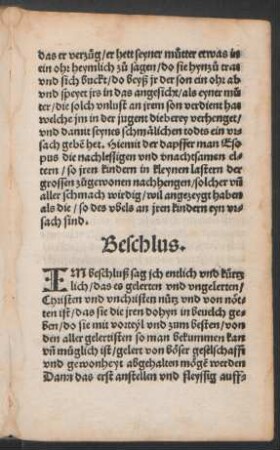 das er verzüg/er hett seyner mütter etwas in
ein ohr heymlich zů sagen/do sie hynzů trat
vnd sich buckt/do beyß jr der son ein ohr ab
vnd speyet jrs in das angesicht/als eyner mů
ter/die solch vnlust an jrem son verdient hat
welche jm in der jugent dieberey verhenget/
vnd damit seynes schmälichen todts ein vr
sach gebē het. Hiemit der dapffer man Eso
pus die nachlessigen vnd vnachtsamen el-
tern/so jren kindern in kleynen lastern der
grossen zůgewonen nachhengen/solcher vñ
aller schmach wirdig/wil angezeygt haben
als die/so des vbels an jren kindern eyn vr
sach sind.
Beschlus.
IM beschluß sag ich entlich vnd kürtz
lich/das es gelerten vnd vngelerten/
Christen vnd vnchristen nütz vnd von nöt-
ten ist/das sie die jren dohyn in beuelch ge-
ben/do sie mit vorteyl vnd zum besten/von
den aller gelertisten so man bekummen kan
vñ müglich ist/gelert von böser geselschafft
vnd gewonheyt abgehalten mögē werden
Dann das erst anstellen vnd fleyssig auff-